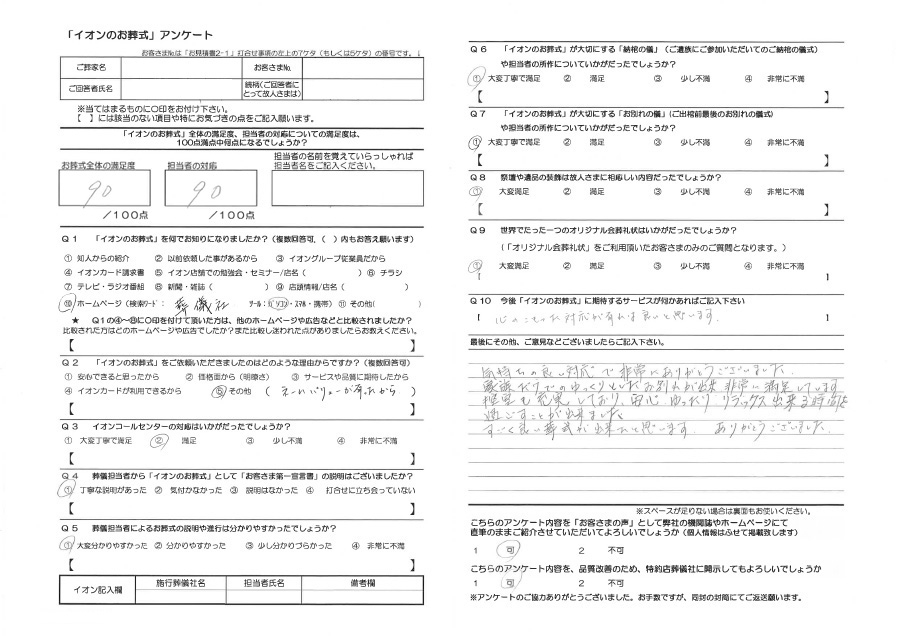 「イオンのお葬式」アンケート
お客さまNo.は「お見積書2-1」打合せ事項の左上の7ケタ（もしくは5ケタ）の番号です。↓
ご葬家名 お客さまNo.
ご回答者氏名 続柄（ご回答者にとって故人さまは）
※当てはまるものに○印をお付け下さい。
【　】には該当のない項目や特にお気づきの点をご記入願います。
「イオンのお葬式」全体の満足度、担当者の対応についての満足度は、
100点満点中何点になるでしょうか？
お葬式全体の満足度 担当者の対応 担当者の名前を覚えていらっしゃれば
担当者名をご記入ください。
90 90
／100点 ／100点
Q1 「イオンのお葬式」を何でお知りになりましたか？（複数回答可、（　）内もお答え願います）
① 知人からの紹介 ② 以前依頼した事があるから ③ イオングループ従業員だから
④ イオンカード請求書 ⑤ イオン店舗での勉強会・セミナー/店名（　） ⑥ チラシ
⑦ テレビ・ラジオ番組 ⑧ 新聞・雑誌（　） ⑨ 店頭情報/店名（　）
⑩ ホームページ（検索ワード： 葬儀社 ツール：パソコン・スマホ・携帯） ⑪ その他（　）
★ Q1の④～⑩に○印を付けて頂いた方は、他のホームページや広告などと比較されましたか？
比較された方はどのホームページや広告でしたか？また比較し迷われた点がありましたらお教えください。
【　】
Q2 「イオンのお葬式」をご依頼いただきましたのはどのような理由からですか？（複数回答可）
① 安心できると思ったから ② 価格面から（明瞭さ） ③ サービスや品質に期待したから
④ イオンカードが利用できるから ⑤ その他 （ ネームバリューが有ったから ）
【　】
Q3 イオンコールセンターの対応はいかがだったでしょうか？
① 大変丁寧で満足 ② 満足 ③ 少し不満 ④ 非常に不満
【　】
Q4 葬儀担当者から「イオンのお葬式」として「お客さま第一宣言書」の説明はございましたか？
① 丁寧な説明があった ② 気付かなかった ③ 説明はなかった ④ 打合せに立ち会っていない
【　】
Q5 葬儀担当者によるお葬式の説明や進行は分かりやすかったでしょうか？
① 大変分かりやすかった ② 分かりやすかった ③ 少し分かりづらかった ④ 非常に不満
【　】
イオン記入欄 施行葬儀社名 担当者氏名 備考欄
Q6 「イオンのお葬式」が大切にする「納棺の儀」（ご遺族にご参加いただいてのご納棺の儀式）
や担当者の所作についていかがだったでしょうか？
① 大変丁寧で満足 ② 満足 ③ 少し不満 ④ 非常に不満
【　】
Q7 「イオンのお葬式」が大切にする「お別れの儀」（ご出棺前最後のお別れの儀式）
や担当者の所作についていかがだったでしょうか？
① 大変丁寧で満足 ② 満足 ③ 少し不満 ④ 非常に不満
【　】
Q8 祭壇や遺品の装飾は故人さまに相応しい内容だったでしょうか？
① 大変満足 ② 満足 ③ 少し不満 ④ 非常に不満
【　】
Q9 世界でたった一つのオリジナル会葬礼状はいかがだったでしょうか？
（「オリジナル会葬礼状」をご利用頂いたお客さまのみのご質問となります。）
① 大変満足 ② 満足 ③ 少し不満 ④ 非常に不満
Q10 今後「イオンのお葬式」に期待するサービスが何かあればご記入下さい
心のこもった対応が有れば良いと思います。
最後にその他、ご意見などございましたらご記入下さい。
気持ちの良い対応で非常にありがとうございました。
家族だけでのゆっくりとしたお別れが出来 非常に満足しています
も充実しており、安心 ゆったり リラックス出来る時間を
過ごすことが出来ました。
すごく良い葬式が出来たと思います。 ありがとうございました。
※スペースが足りない場合は裏面もお使いください。
こちらのアンケート内容を「お客さまの声」として弊社の機関誌やホームページにて
直筆のままご紹介させていただいてよろしいでしょうか（個人情報はふせて掲載致します）
1 可 2 不可
こちらのアンケート内容を、品質改善のため、特約店葬儀社に開示してもよろしいでしょうか
1 可 2 不可
※アンケートのご協力ありがとうございました。お手数ですが、同封の封筒にてご返送願います。